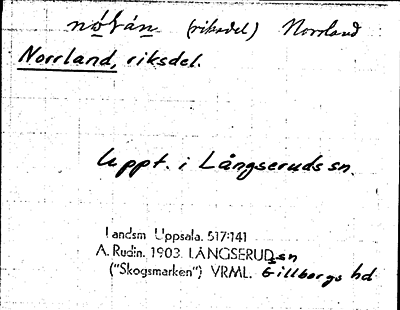 (riksdel) Norrland
Norrland, riksdel.
Uppt. i Långseruds sn.
Landsm Uppsala. 517:141
A. Rudin. 1903. LÅNGSERUD sn
("Skogsmarken") VRML. Gillbergs hd